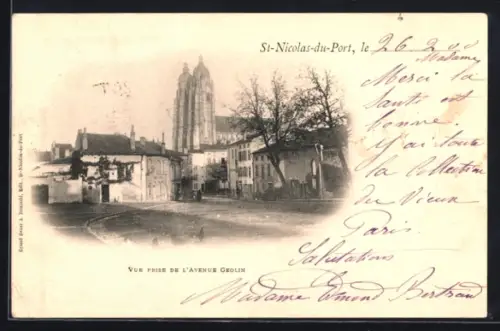 St-Nicolas-du-Port, le 26 2 00
Madame
Merci la
santé est
bonne.
J'ai toute
la collection
du Vieux
Paris.
Salutations
Madame Edmond Bertrand
VUE PRISE DE L'AVENUE GEOLIN
St-Nicolas-du-Port